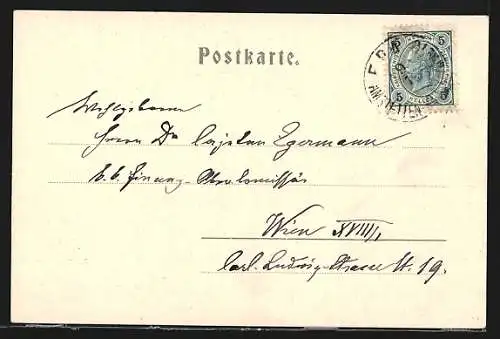 Postkarte.
5 5
AMSTETTEN
Wohlgeboren
Herrn Dr Cajetan Egermann
k. k. Finanz-Oberkomissär
Wien XVIII/1
Carl-Ludwig-Strasse N. 19.